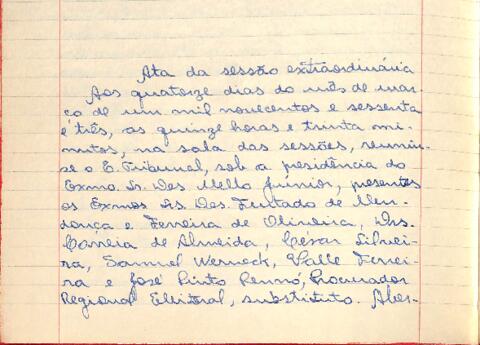 Ata da sessão extraordinária
Aos quatorze dias do mês de mar-
ço de um mil novecentos e sessenta
e três, as quinze horas e trinta mi-
nutos, na sala das sessões, reuniu-
se o E. Tribunal, sob a presidência do
Exmo. Sr. Des. Mello Junior, presentes
os Exmos Srs. Des. Furtado de Men-
donça e Ferreira de Oliveira, Drs.
Correia de Almeida, César Silvei-
ra, Samuel Werneck, Valle Ferrei-
ra e José Pinto Rennó, Procurador
Regional Eleitoral, substituto. Aber-